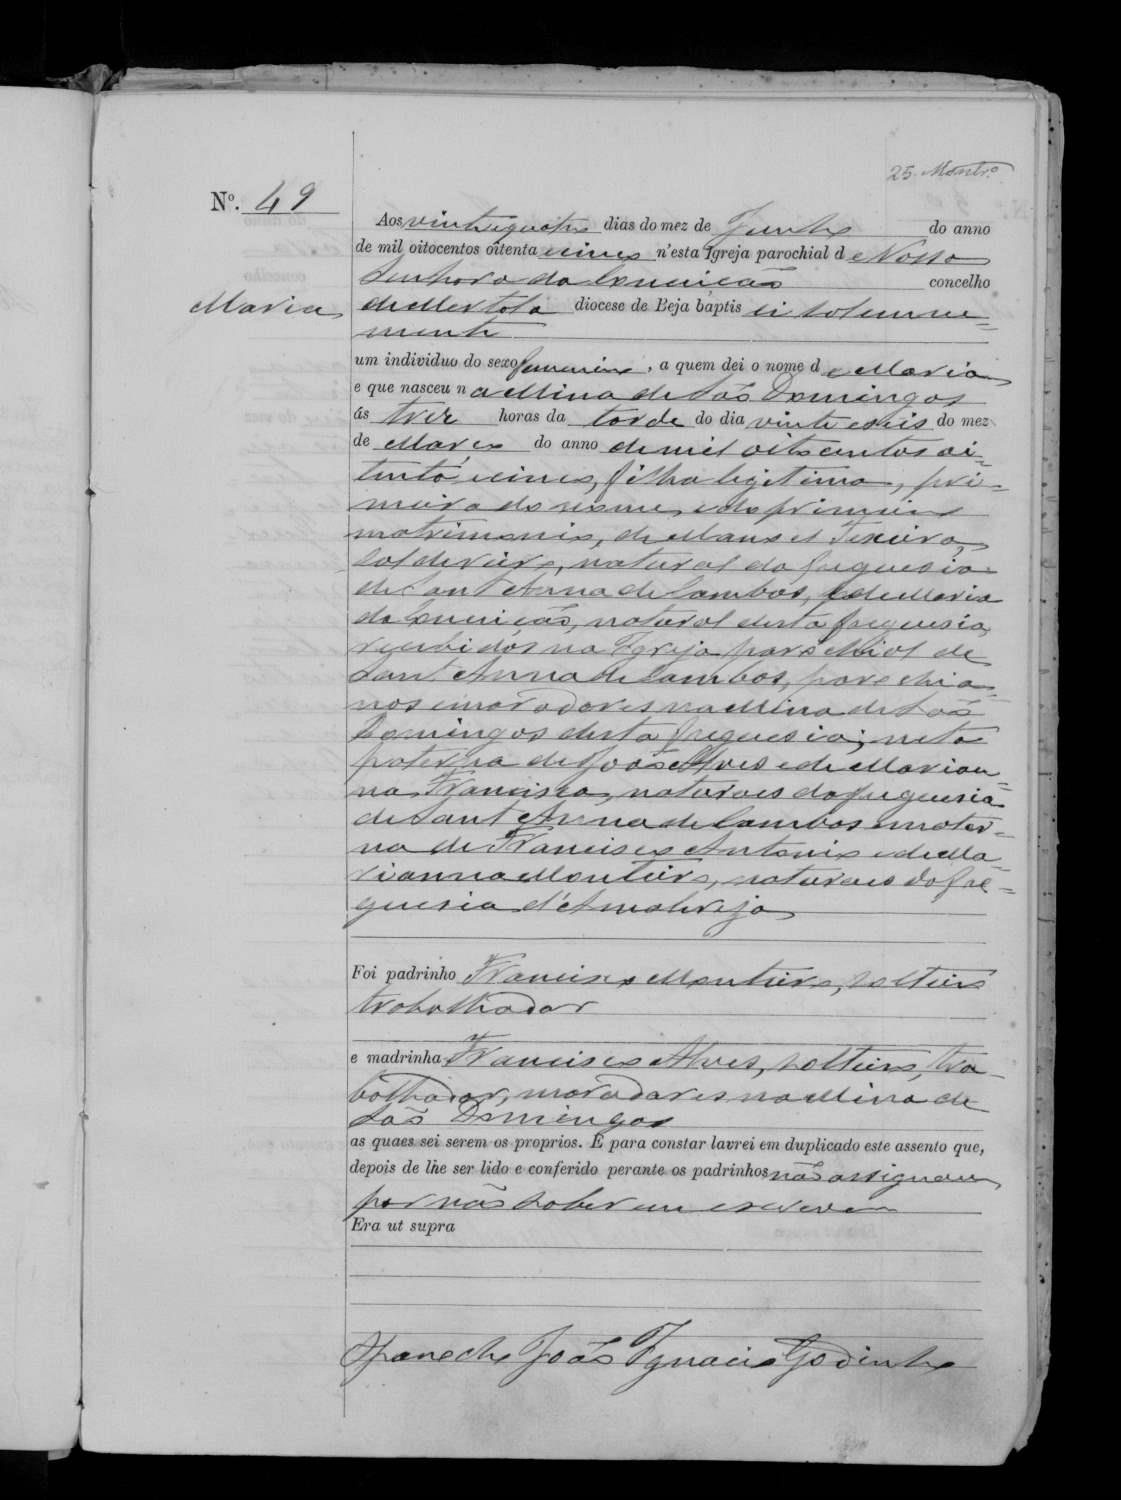 25 Montr.º
Nº. 49
Aos vinte e quatro dias do mez de Junho do anno
de mil oitocentos oitenta e cinco n'esta Igreja parochial de Nossa
Senhora da Conceição concelho
Maria
de Mertola diocese de Beja baptisei solemne=
mente
um individuo do sexo femenino, a quem dei o nome de Maria
e que nasceu na Mina de São Domingos
ás trez horas da tarde do dia vinte e seis do mez
de Março do anno de mil oitocentos oi=
tenta e cinco, filha legitima, pri=
meira do nome, e do primeiro
matrimonio, de Manoel Texeira,
caldereiro, natural da freguesia
de Sant'Anna de Cambas, e de Maria
da Conceição, natural desta freguesia,
recebidos na Igreja parochial de
Sant'Anna de Cambas, parochia=
nos e moradores na Mina de São
Domingos desta freguesia; neta
paterna de João Alves e de Marian=
na Francisca, naturaes da freguesia
de Sant'Anna de Cambas e mater=
na de Francisco Antonio e de Ma=
rianna Monteira, naturaes da fre=
guesia d'Amareleja
Foi padrinho Francisco Monteiro, solteiro
trabalhador
e madrinha Francisco Alves, solteiro, tra=
balhador, moradores na Mina de
São Domingos
as quaes sei serem os proprios. E para constar lavrei em duplicado este assento que,
depois de lhe ser lido e conferido perante os padrinhos não assignam
por não saberem escrever
Era ut supra
O Parocho João Ignacio Godinho